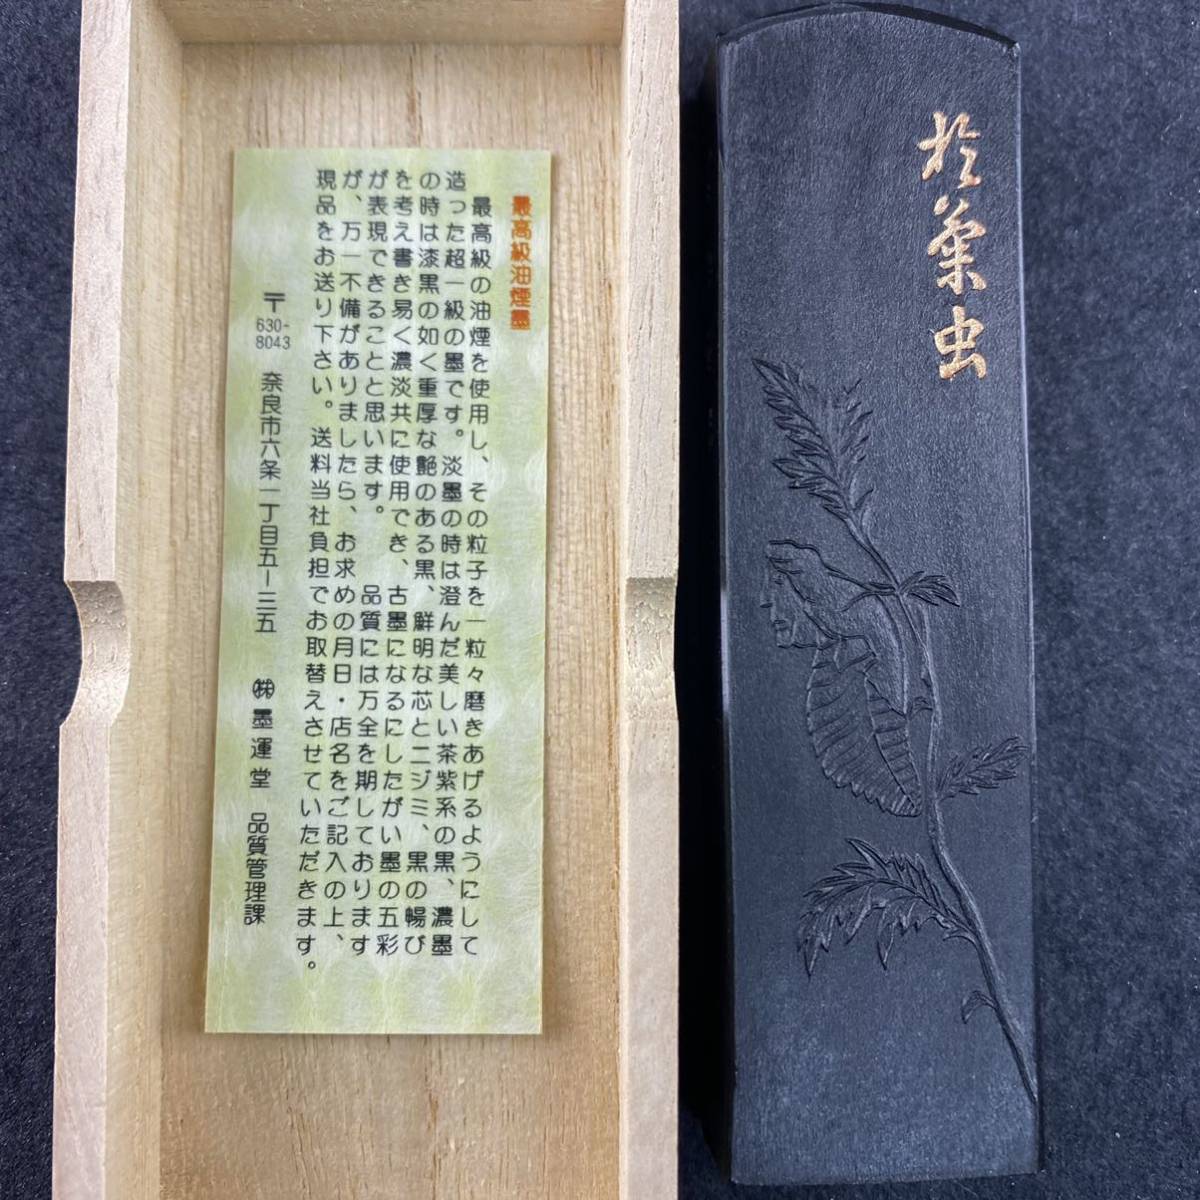 最高級油煙墨
最高級の油煙を使用し、その粒子を一粒々磨きあげるようにして
造った超一級の墨です。淡墨の時は澄んだ美しい茶紫系の黒、濃墨
の時は漆黒の如く重厚な艶のある黒、鮮明な芯とニジミ、黒の暢び
を考え書き易く濃淡共に使用でき、古墨になるにしたがい墨の五彩
が表現できることと思います。 品質には万全を期しております
が、万一不備がありましたら、お求めの月日・店名をご記入の上、
現品をお送り下さい。送料当社負担でお取替えさせていただきます。
〒630-8043 奈良市六条一丁目五ー三五 ㈱墨運堂 品質管理課
虫